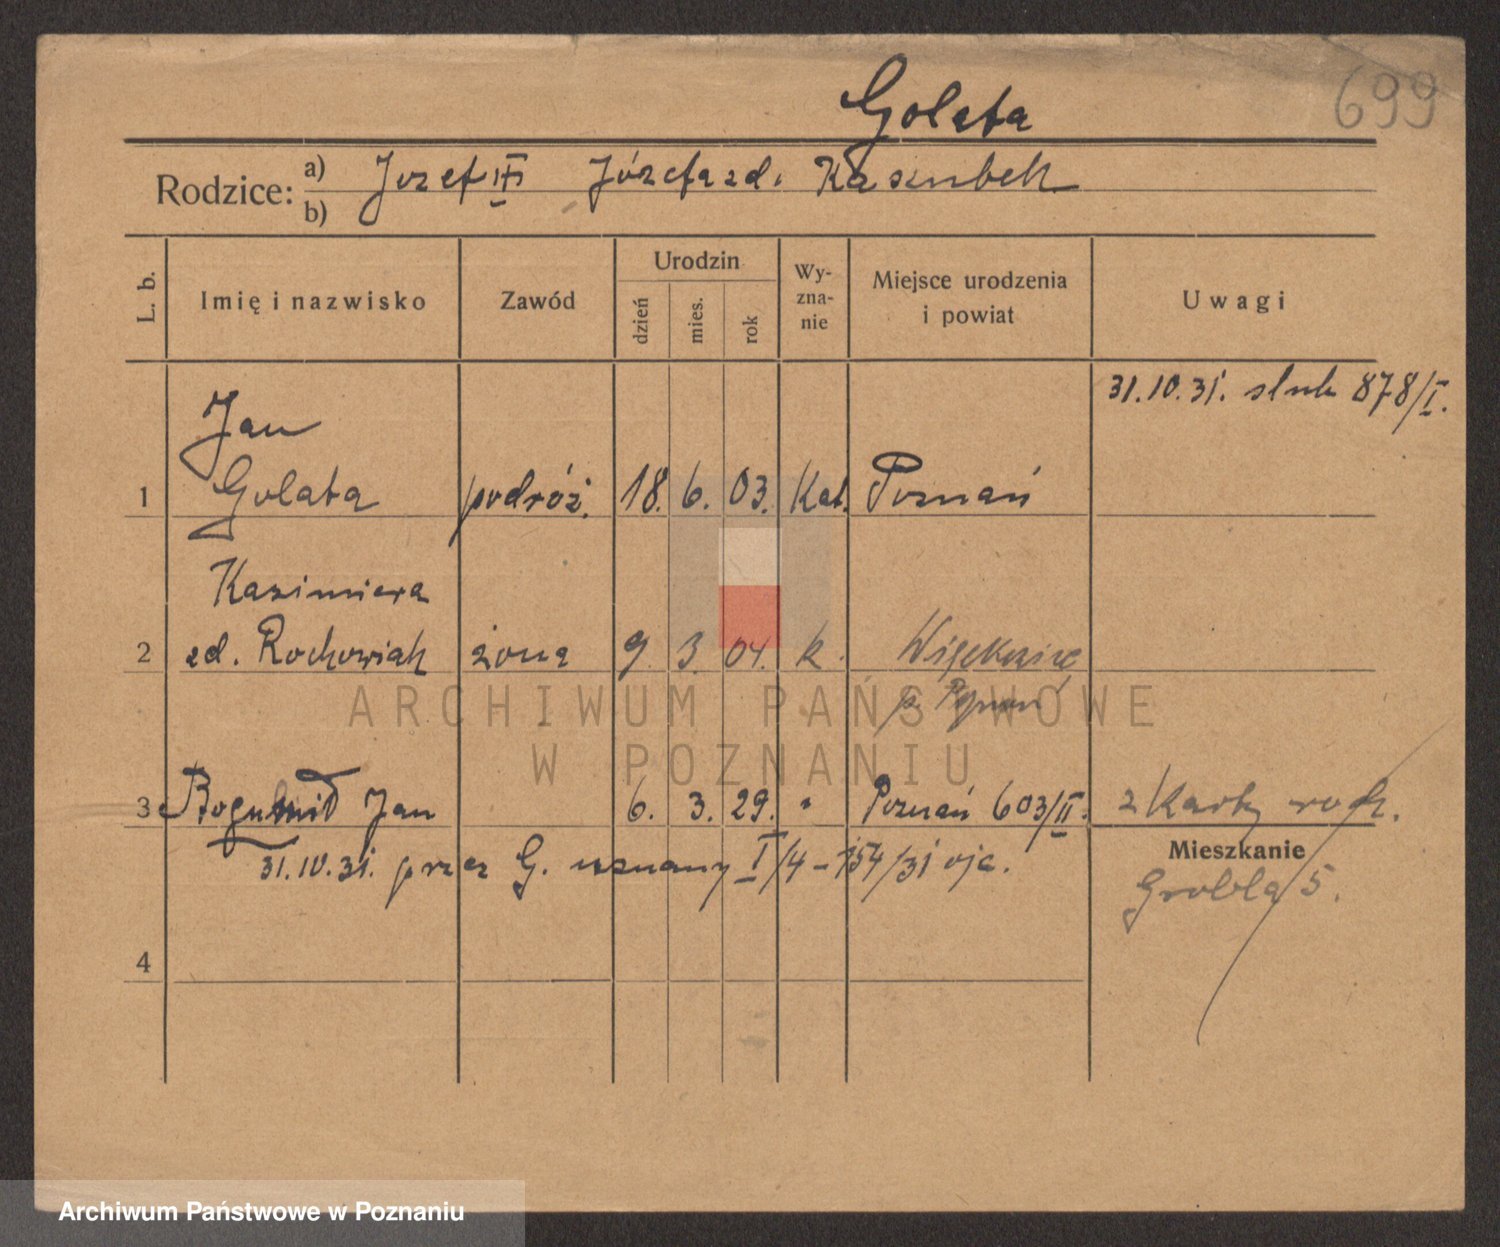 Golata
699
Rodzice: a) Józef III Józefa zd. Kaszubek
b)
L. b. Imię i nazwisko Zawód Urodzin dzień mies. rok Wy-zna-nie Miejsce urodzenia i powiat Uwagi
31.10.31. slub 878/I.
Jan
1 Golata podróż. 18. 6. 03. Kat. Poznań
Kazimiera
2 zd. Rochowiak żona 9. 3. 04. k.
p. Poznań
ARCHIWUM PAŃSTWOWE
W POZNANIU
3 Bogumił Jan 6. 3. 29. " Poznań 603/II. z Karty rodz.
31.10.31. przez G. uznany I/4-154/31 ojc.
Mieszkanie
Grobla 5.
4
Archiwum Państwowe w Poznaniu